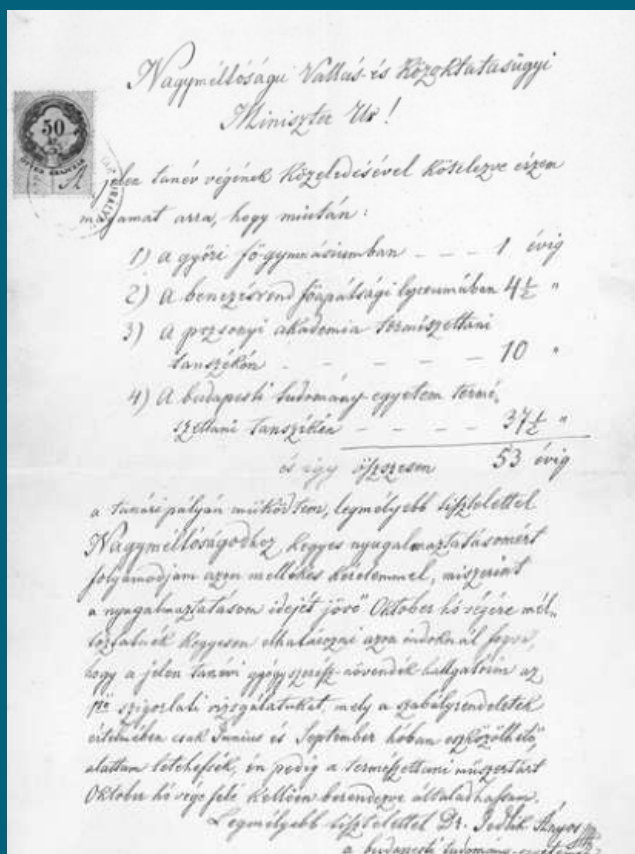 Nagyméltóságu Vallás és Közoktatásügyi
Miniszter Ur!
50
A jelen tanév végének közeledésével kötelezve érzem
magamat arra, hogy miután:
1) a győri főgymnásiumban - - - 1 évig
2) A benczésrend főapátsági lyceumában 4½ "
3) A pozsonyi akademia természettani
tanszékén - - - - - 10 "
4) A budapesti tudomány-egyetem termé-
szettani tanszékén - - - - 37½ "
és igy öszszesen 53 évig
a tanári pályán müködtem, legmélyebb tisztelettel
Nagyméltóságodhoz kegyes nyugalmaztatásomért
folyamodjam azon mellékes kérelemmel, miszerint
a nyugalmaztatásom idejét jövő Oktober hó végére mél-
tóztatnék kegyesen elhatározni azon indoknál fogva,
hogy a jelen tanévi gyógyszerész-növendék hallgatóim az
szigorlati vizsgálatukat, mely a szabályrendeletek
értelmében csak Június és September hóban eszközölhető,
alattam letehessék, én pedig a természettani müszertárt
Oktober hó vége felé kellően berendezve általadhassam.
Legmélyebb tisztelettel Dr. Jedlik Ányos
a budapesti tudomány-egyetemen